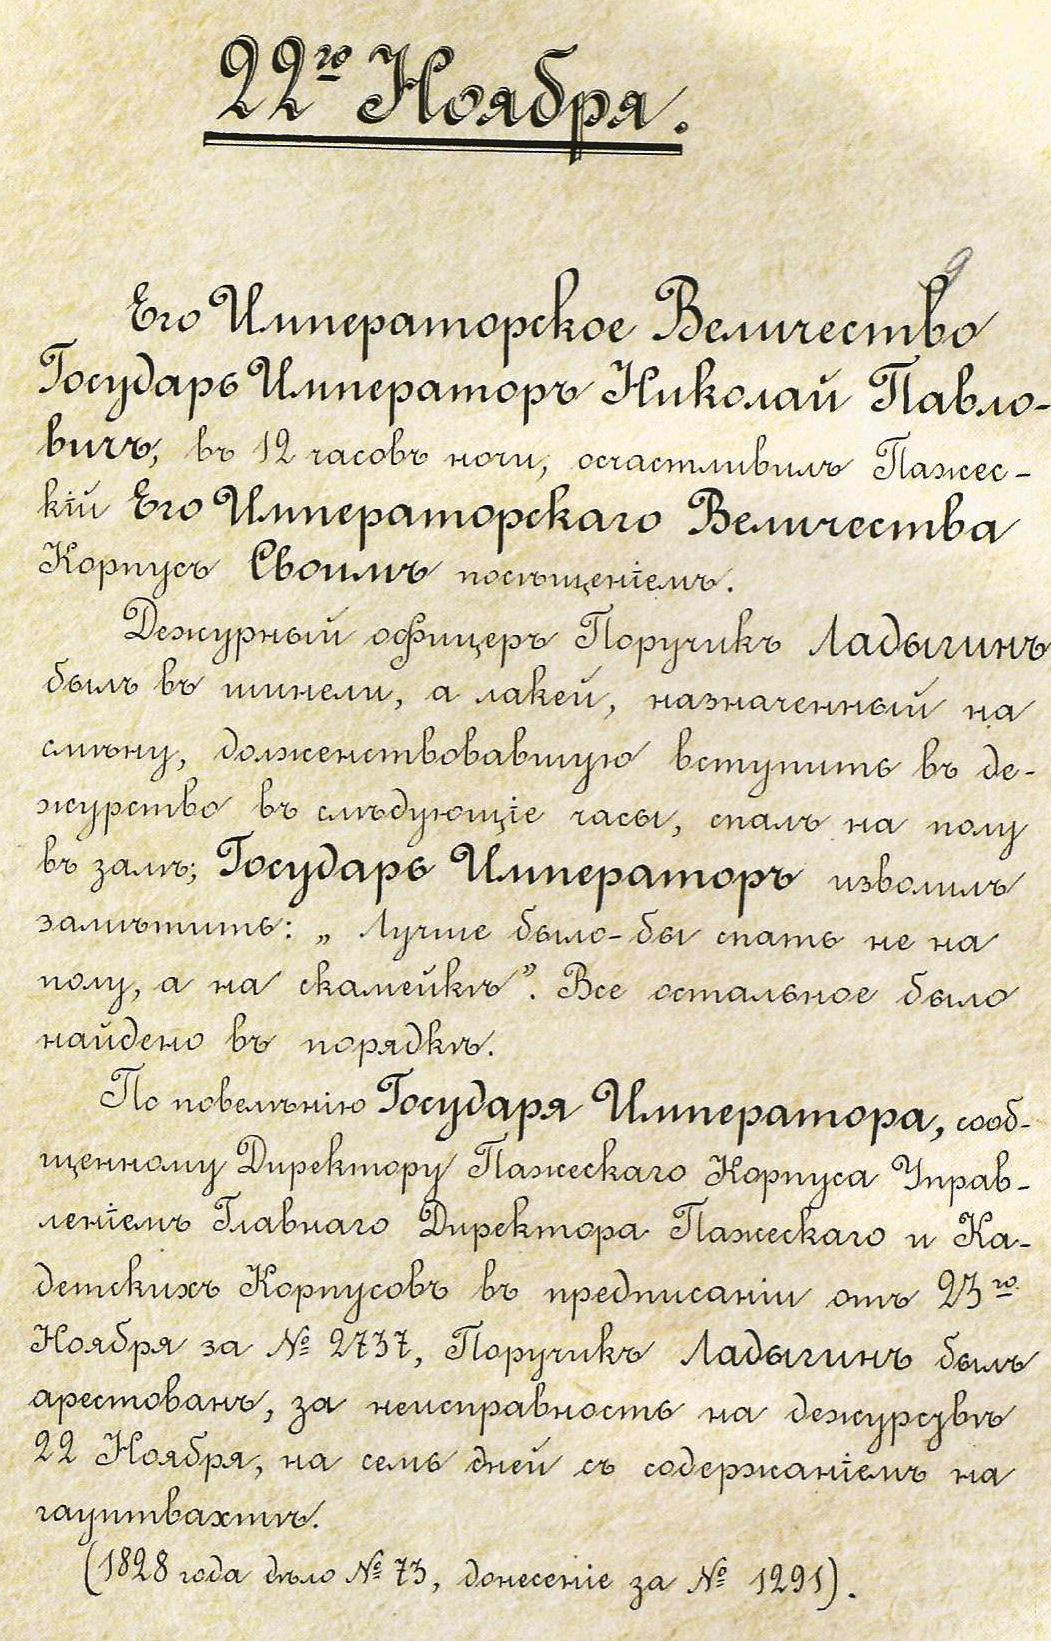 22го Ноября.
9
Его Императорское Величество
Государь Императоръ Николай Павло-
вичъ, въ 12 часовъ ночи, осчастливилъ Пажес-
кій Его Императорскаго Величества
Корпусъ Своимъ посѣщеніемъ.
Дежурный офицеръ Поручикъ Ладыгинъ
былъ въ шинели, а лакей, назначенный на
смѣну, долженствовавшую вступить въ де-
журство въ слѣдующіе часы, спалъ на полу
въ залѣ; Государь Императоръ изволилъ
замѣтить: „Лучше было-бы спать не на
полу, а на скамейкѣ”. Все остальное было
найдено въ порядкѣ.
По повелѣнію Государя Императора, сооб-
щенному Директору Пажескаго Корпуса Управ-
леніемъ Главнаго Директора Пажескаго и Ка-
детскихъ Корпусовъ въ предписаніи отъ 23го
Ноября за № 2737, Поручикъ Ладыгинъ былъ
арестованъ, за неисправность на дежурствѣ
22 Ноября, на семь дней съ содержаніемъ на
гауптвахтѣ.
(1828 года дѣло № 73, донесеніе за № 1291).